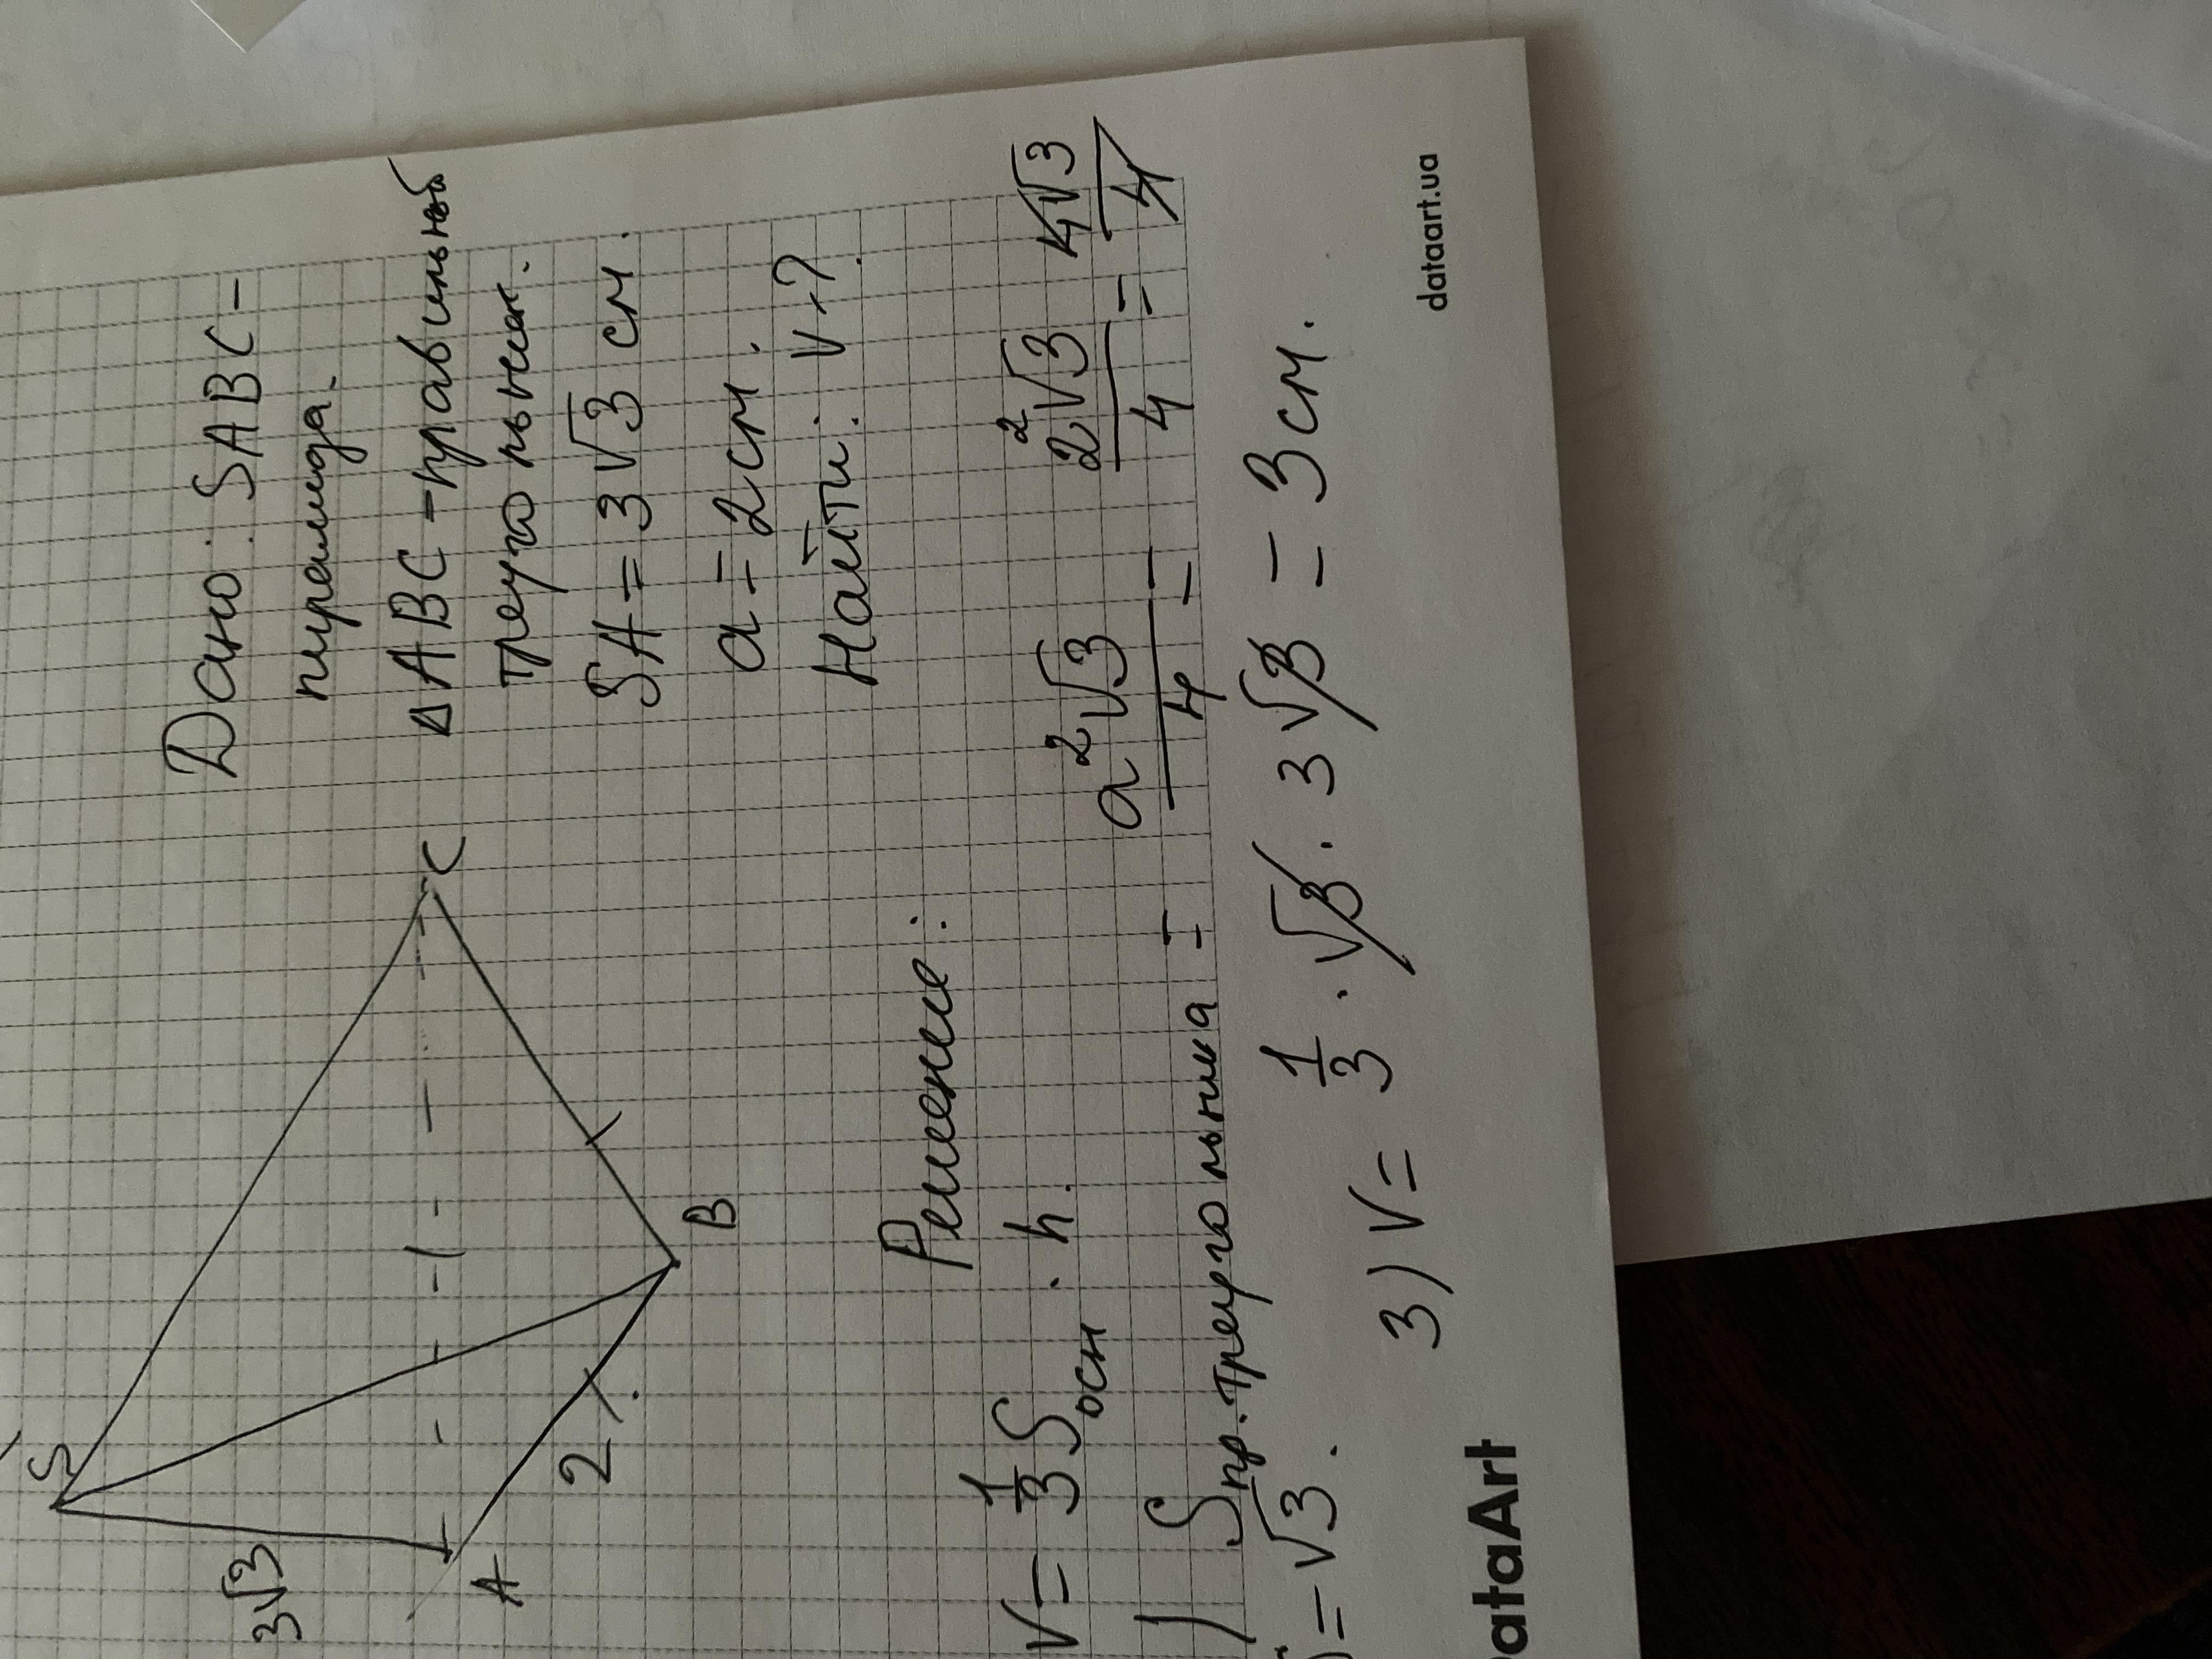 S
3√3
A
2
B
C
Дано: SABC –
пирамида.
∆ABC – правильный
треугольник.
SA = 3√3 см.
a = 2 см.
Найти: V-?
Решение:
V = 1/3 Sосн · h.
) Sпр.треугольника = a²√3/4 = 2²√3/4 = 4√3/4
= √3.
3) V = 1/3 · √3 · 3√3 = 3 см.
ataArt
dataart.ua